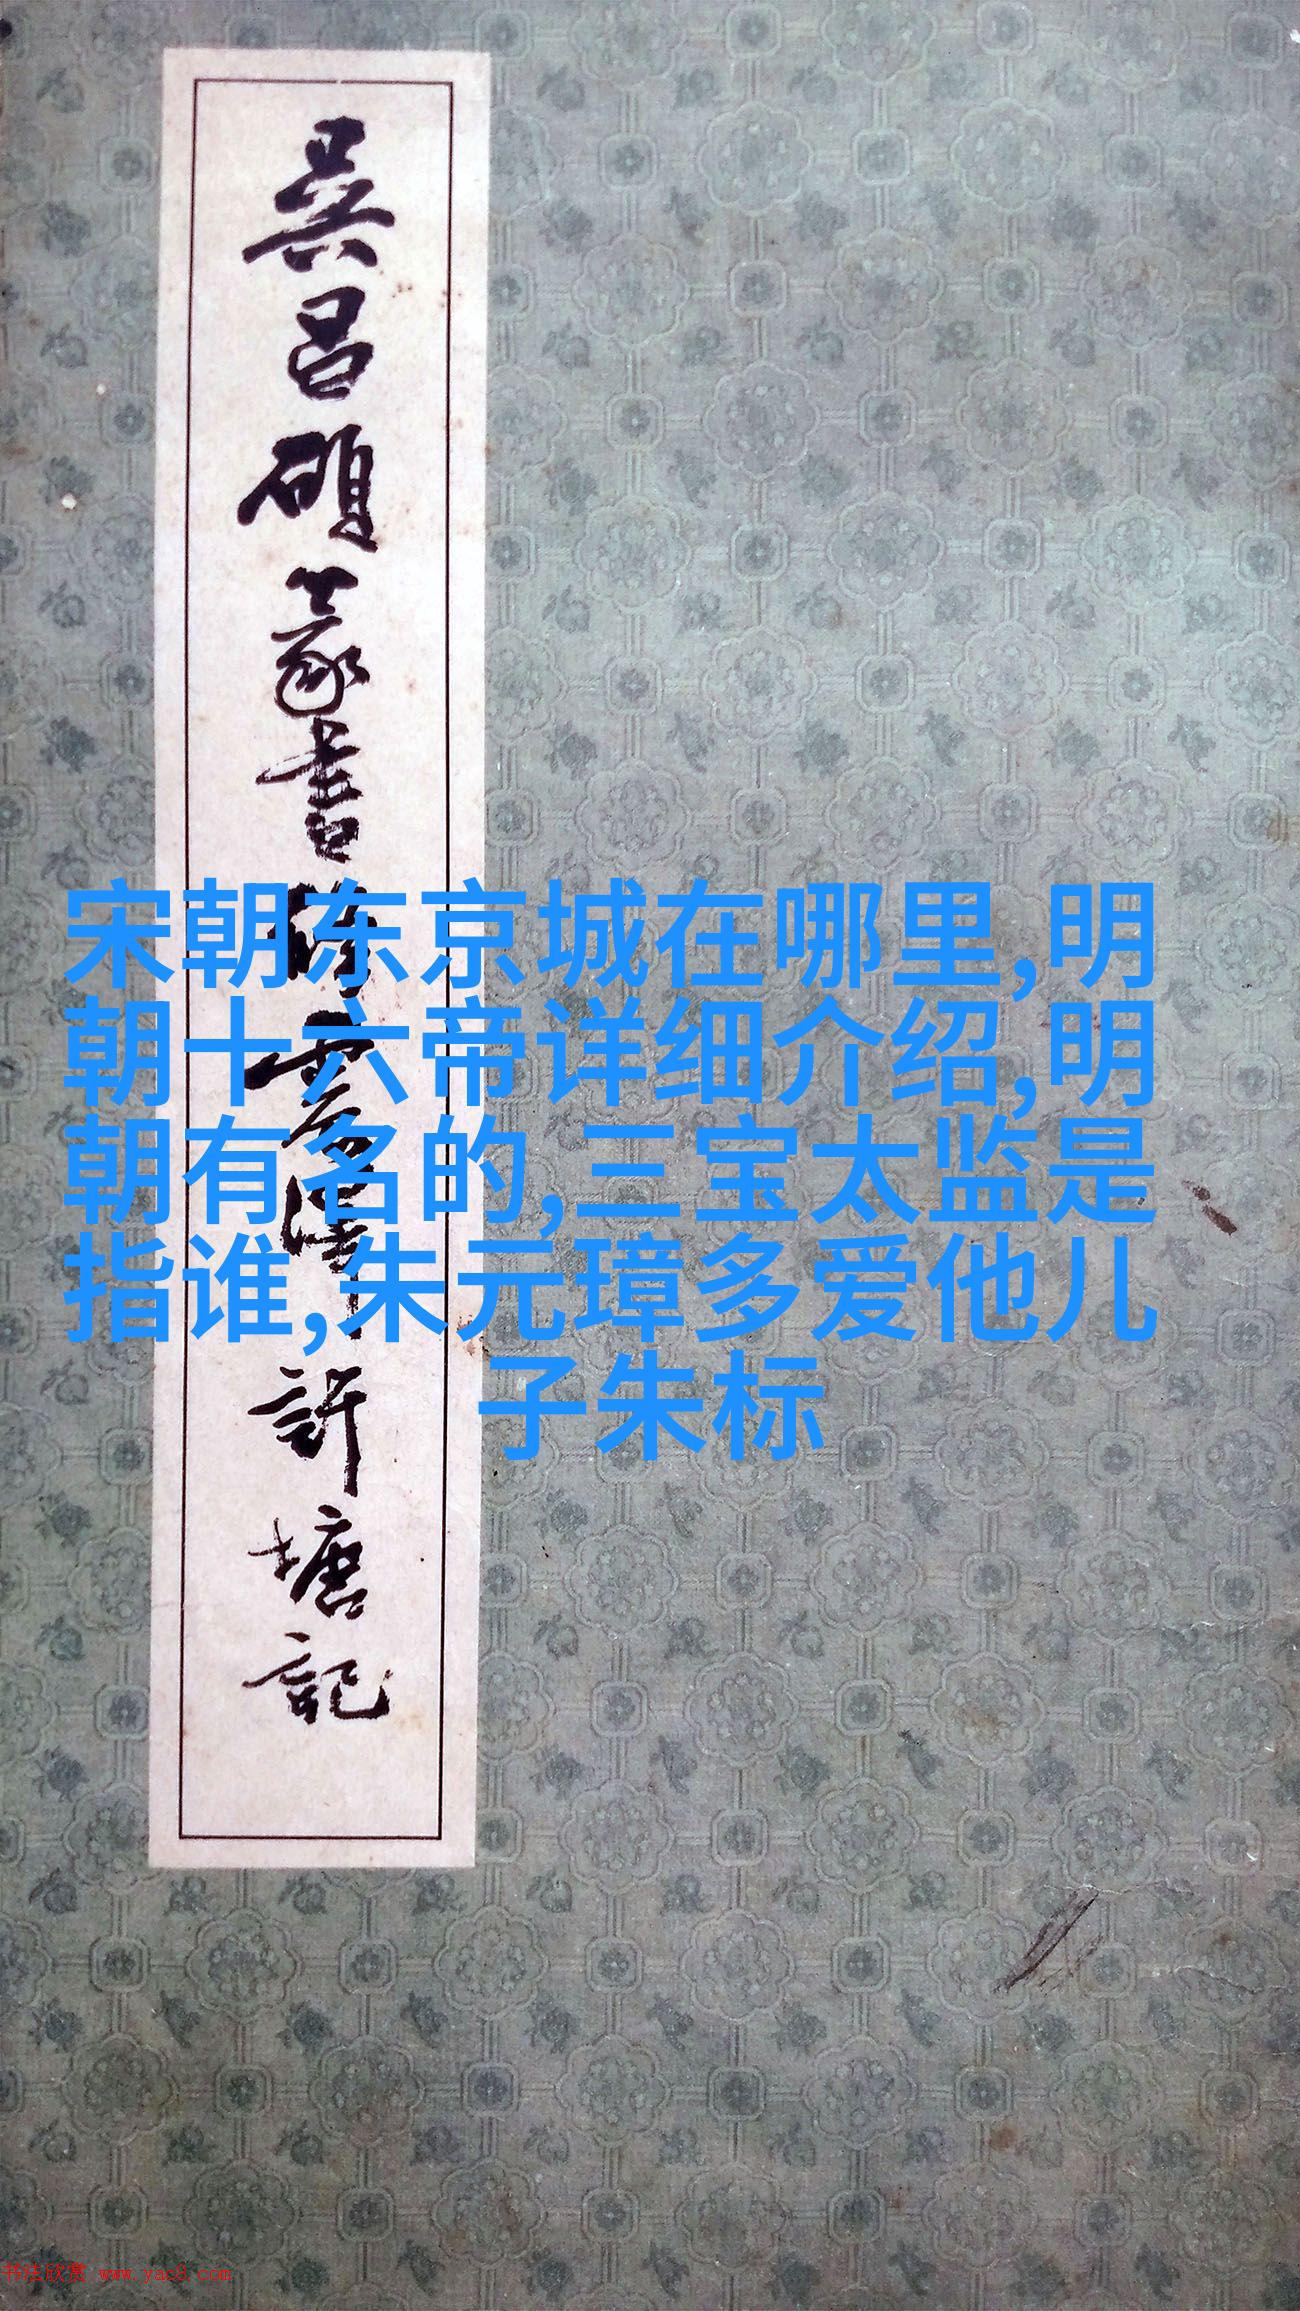 吴昌硕篆书修震泽许塘记
宋朝东京城在哪里,明
朝十六帝详细介绍,明
朝有名的,三宝太监是
指谁,朱元璋多爱他儿
子朱标
书法欣赏 www.yac8.com